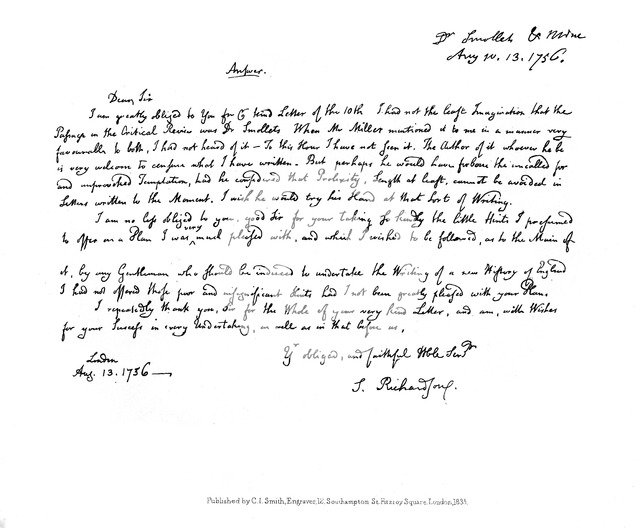 Dr Smollets & Mine
Aug 10. 13. 1756.
Answer.
Dear Sir
I am greatly obliged to You for yr kind Letter of the 10th I had not the least Imagination that the
Passage in the Critical Review was Dr Smollets When Mr Millar mentioned it to me in a manner very
favourable to both, I had not heard of it — To this Hour I have not seen it. The Author of it whoever he be
is very welcome to censure what I have written. But perhaps he would have forborne the uncalled for
and unprovoked Temptation, had he considered that Prolixity, Length at least, cannot be avoided in
Letters written to the Moment. I wish he would try his Hand at that Sort of Writing.
I am no less obliged to you, good Sir for your taking so kindly the little Hints I presumed
to offer on a Plan I was very much pleased with, and which I wished to be followed, as to the Main of
it, by any Gentleman who should be induced to undertake the Writing of a new History of England
I had not offered those poor and insignificant Hints had I not been greatly pleased with your Plan.
I repeatedly thank you, Sir for the Whole of your very kind Letter, and am, with Wishes
for your Success in every Undertaking, as well as in that before us,
Yr obliged, and faithful Hble Servt
London
Aug. 13. 1756 —
S. Richardson.
Published by C. I. Smith, Engraver, 18, Southampton St. Fitzroy Square, London, 1835.